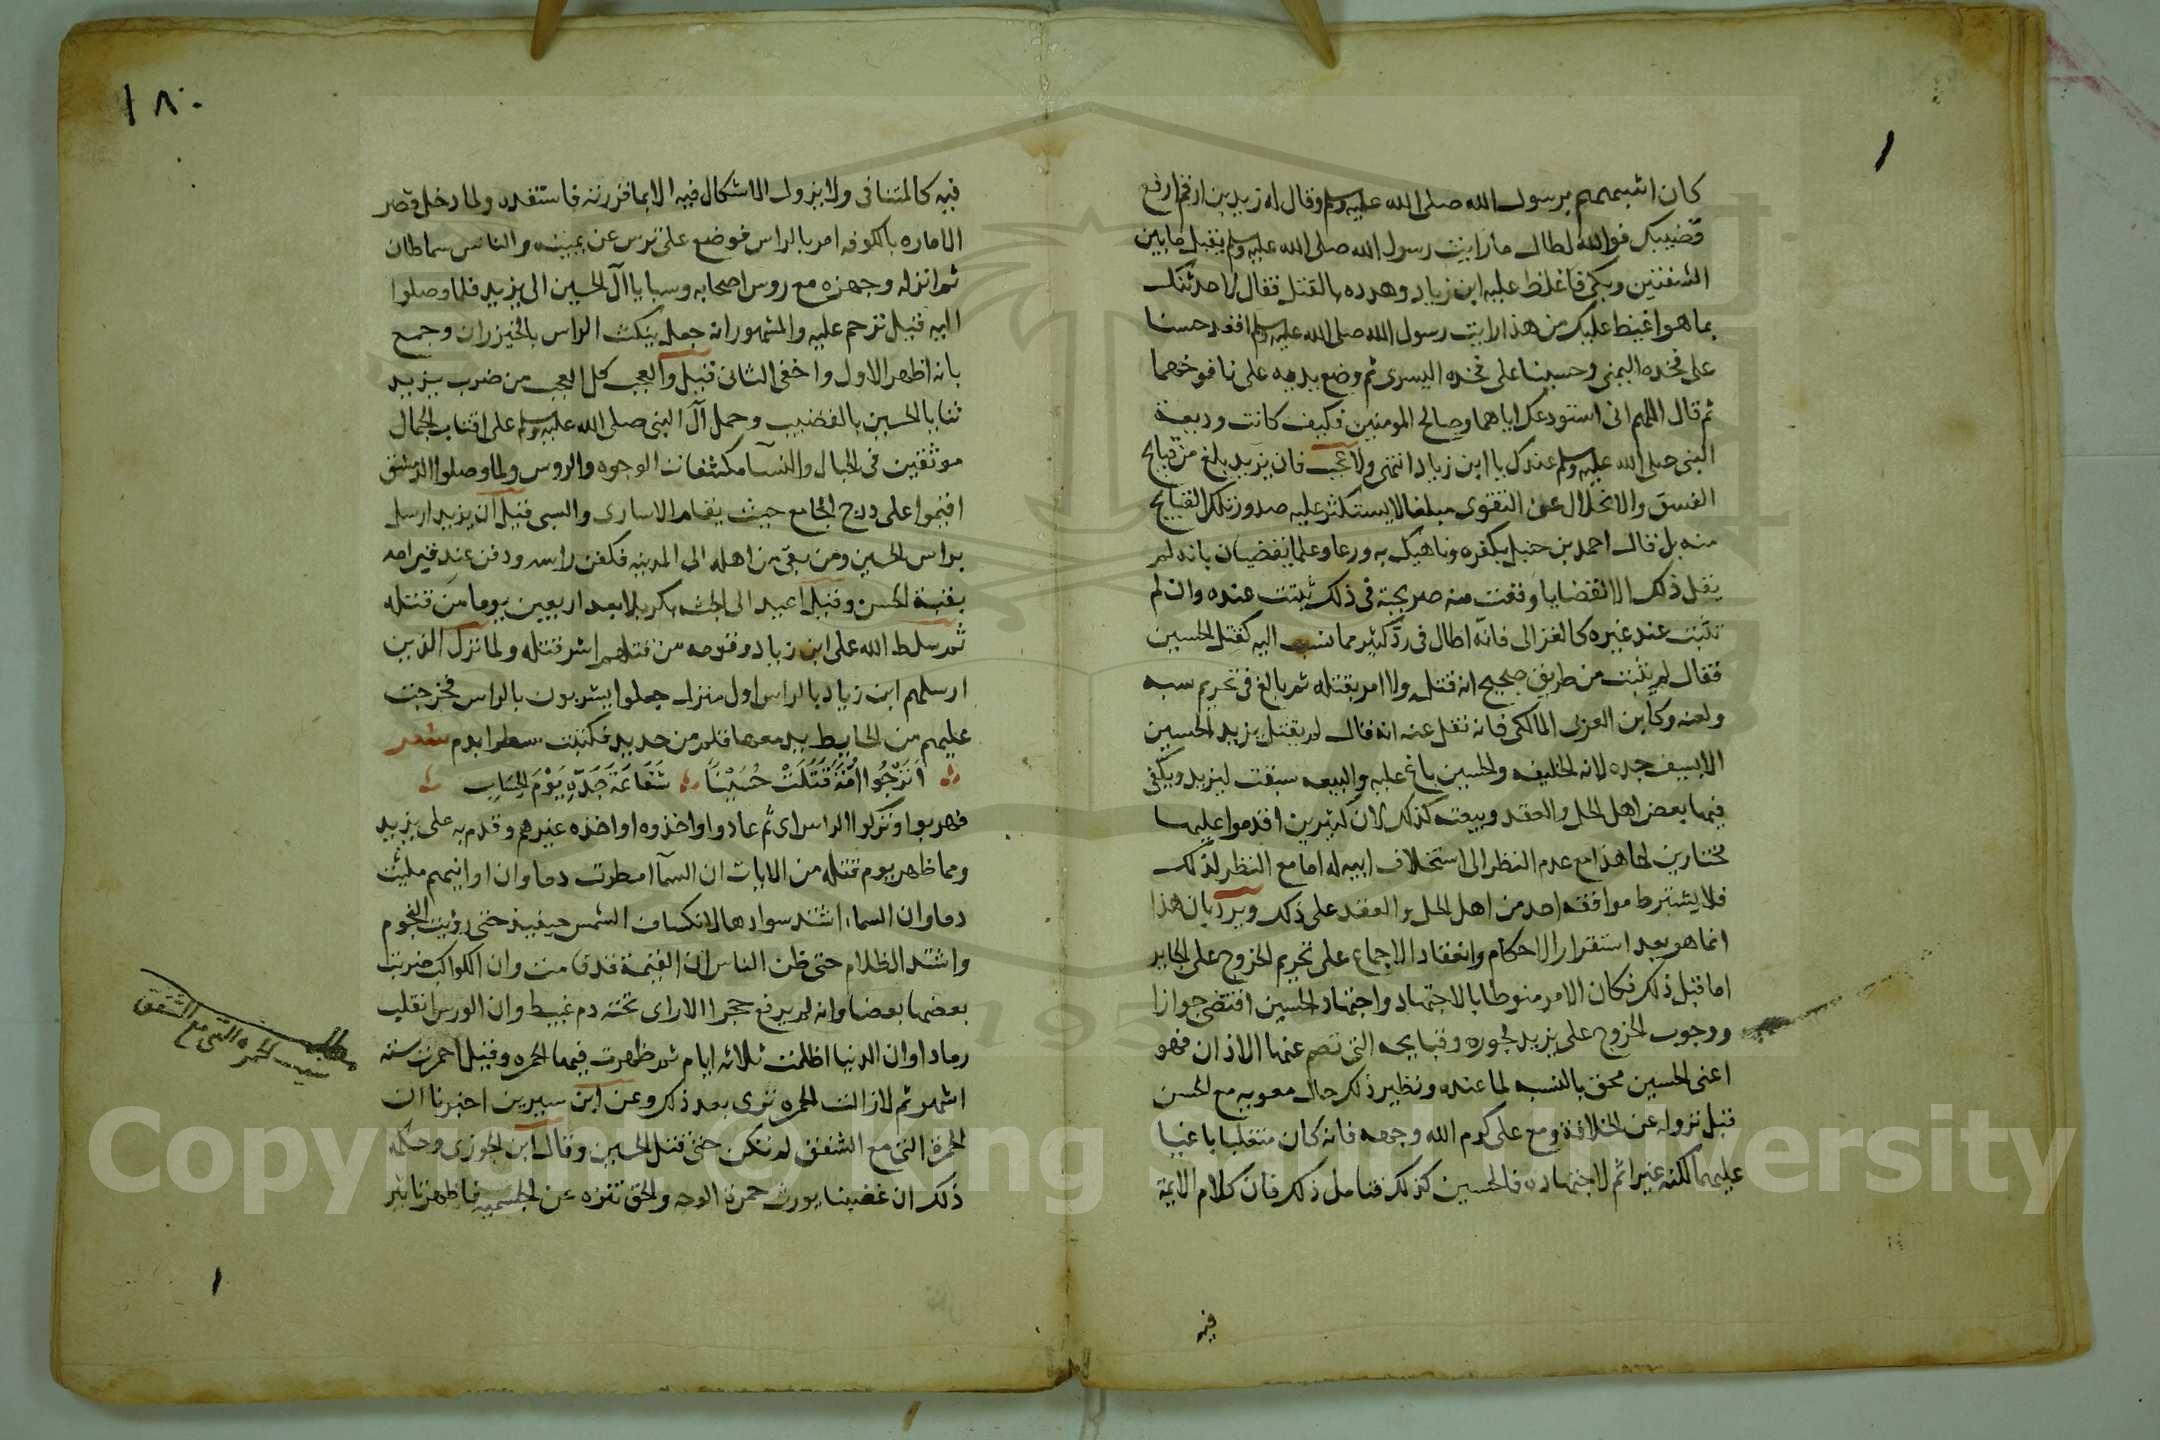 كان اشبههم برسول الله صلى الله عليه وسلم وقال له زيد بن ارقم ارفع
قضيبك فوالله لطال ما رايت رسول الله صلى الله عليه وسلم يقبل ما بين
الشفتين وبكى فاغلظ عليه ابن زياد وهدده بالقتل فقال لاحدثنك
بما هو اغيظ عليك من هذا رايت رسول الله صلى الله عليه وسلم اقعد حسنا
على فخذه اليمنى وحسينا على فخذه اليسرى ثم وضع يديه على نافوخهما
ثم قال اللهم انى استودعك اياهما وصالح المومنين فكيف كانت وديعة
النبى صلى الله عليه وسلم عندك يا ابن زياد انتهى ولا عجب فان يزيد بلغ من قبايح
الفسق والانحلال عن التقوى مبلغا لا يستكثر عليه صدور تلك القبايح
منه بل قال احمد بن حنبل بكفره وناهيك به ورعا وعلما يقضيان بانه لم
يقل ذلك الا لقضايا وقعت منه صريحة فى ذلك ثبتت عنده وان لم
تثبت عند غيره كالغزالى فانه اطال فى رد كثير مما نسب اليه كقتل الحسين
فقال لم يثبت من طريق صحيح انه قتله ولا امر بقتله ثم بالغ فى تحريم سبه
ولعنه وكابن العربى المالكى فانه نقل عنه انه قال لم يقتل يزيد الحسين
الا بسيف جده لانه الخليفه والحسين باغ عليه والبيعه سبقت ليزيد ويكفى
فيها بعض اهل الحل والعقد وبيعته كذلك لان كثيرين اقدموا عليها
مختارين لها هذا مع عدم النظر الى استخلاف ابيه له اما مع النظر لذلك
فلا يشترط موافقه احد من اهل الحل والعقد على ذلك ويرد بان هذا
انما هو بعد استقرار الاحكام وانعقاد الاجماع على تحريم الخروج على الجاير
اما قبل ذلك فكان الامر منوطا بالاجتهاد واجتهاد الحسين اقتضى جوازا
ووجوب الخروج على يزيد لجوره وقبايحه التى تصم عنها الاذان فهو
اعنى الحسين محق بالنسبه لما عنده ونظير ذلك حال معويه مع الحسن
قبل نزوله عن الخلافة ومع على كرم الله وجهه فانه كان متغلبا باغيا
عليهما لكنه غير اثم لاجتهاده فالحسين كذلك فتامل ذلك فان كلام الايمة
فيه
١٨٠
فيه كالمتنافى ولا يزول الاشكال فيه الا بما قررته فاستفده ولما دخل قصر
الاماره بالكوفه امر بالراس فوضع على ترس عن يمينه والناس سماطان
ثم انزله وجهزه مع روس اصحابه وسبايا آل الحسين الى يزيد فلما وصلوا
اليه قيل ترحم عليه والمشهور انه جعل ينكث الراس بالخيزران وجمع
بانه اظهر الاول واخفى الثانى قيل والعجب كل العجب من ضرب يزيد
ثنايا الحسين بالقضيب وحمل آل النبى صلى الله عليه وسلم على اقتاب الجمال
موثقين فى الحبال والنسآ مكشفات الوجوه والروس ولما وصلوا الدمشق
اقيموا على درج الجامع حيث يقام الاسارى والسبى قيل ان يزيد ارسل
براس الحسين ومن بقى من اهله الى المدينه فكفن راسه ودفن عند قبر امه
بقبة الحسن وقيل اعيد الى الجثه بكربلا بعد اربعين يوما من قتله
ثم سلط الله على ابن زياد وقومه من قتلهم اشر قتله ولما نزل الذين
ارسلهم ابن زياد بالراس اول منزل جعلوا يشربون بالراس فخرجت
عليهم من الحايط يد معها قلم من حديد فكتبت سطرا بدم شعر
اَتَرْجُوا اُمَّةٌ قَتَلَتْ حُسَيْنًا شَفَاعَةَ جَدِّهِ يَوْمَ الحِسَابِ
فهربوا وتركوا الراس اى ثم عادوا واخذوه او اخذه غيرهم وقدم به على يزيد
ومما ظهر يوم قتله من الايات ان السمآ امطرت دما وان اوانيهم مليت
دما وان السماء اشتد سوادها لانكساف الشمس حينيذ حتى رؤيت النجوم
واشتد الظلام حتى ظن الناس ان القيمة قد قامت وان الكواكب ضربت
بعضها بعضا وانه لم يرفع حجر الا راى تحته دم عبيط وان الورس انقلب
رمادا وان الدنيا اظلمت ثلاثه ايام ثم ظهرت فيها الحمره وقيل احمرت سته
اشهر ثم لا زالت الحمره ترى بعد ذلك وعن ابن سيرين اخبرنا ان
الحمرة التى مع الشفق لم تكن حتى قتل الحسين وقال ابن الجوزى وحكمه
ذلك ان غضبنا يورث حمرة الوجه والحق تنزه عن الجسميه فاظهر تاثير
مطلب
سبب الحمره التى مع الشفق
Copyright © King Saud University